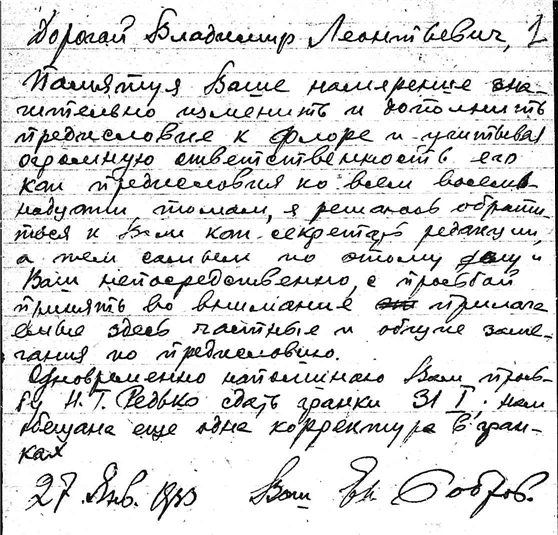 Дорогой Владимир Леонтьевич, 1
Памятуя Ваше намерение зна-
чительно изменить и дополнить
предисловие к Флоре и учитывая
огромную ответственность его
как предисловия ко всем восем-
надцати томам, я решаюсь обрати-
ться к Вам как секретарь редакции,
а тем самым по этому делу и
Вам непосредственно, с просьбой
принять во внимание прилага
емые здесь частные и общие заме-
чания по предисловию.
Одновременно напоминаю Вам прось-
бу Н. Т. Редько сдать гранки 31 I; нам
обещана еще одна корректура в гран-
ках
27 Янв. 1933 Ваш Евг. Бобров.